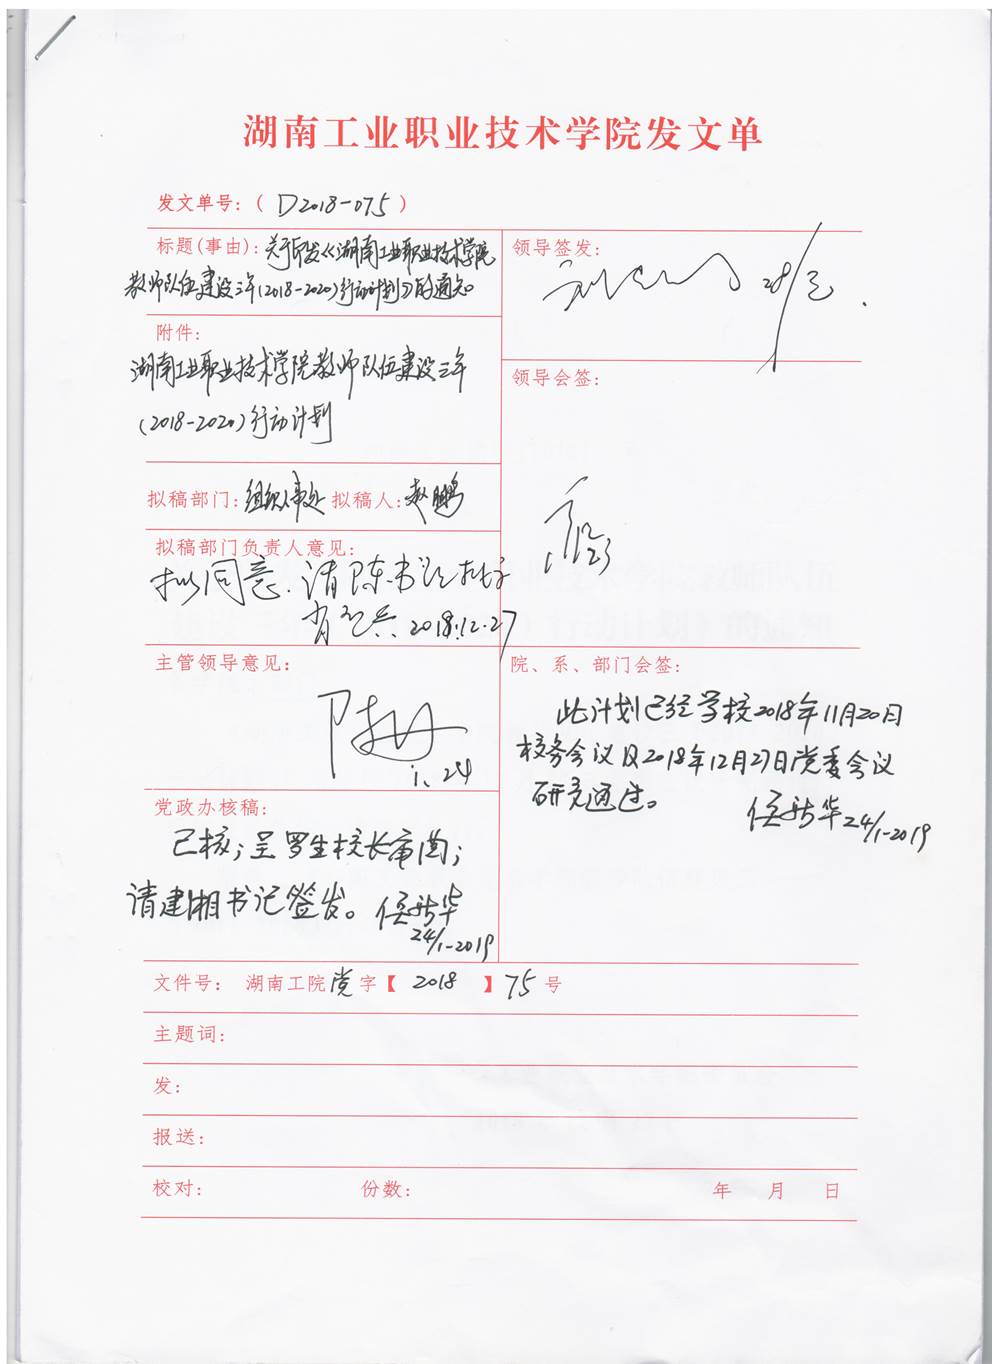 湖南工业职业技术学院发文单
发文单号：（ D2018-075 ）
标题(事由)：关于印发《湖南工业职业技术学院
教师队伍建设三年(2018-2020)行动计划》的通知。
附件：
湖南工业职业技术学院教师队伍建设三年
(2018-2020)行动计划
拟稿部门：组织人事处 拟稿人：赵鹏
拟稿部门负责人意见：
拟同意，请陈书记批示
2018.12.27
主管领导意见：
1.24
党政办核稿：
已核；呈罗生校长审阅；
请建湘书记签发。
24/1-2019
领导签发：
领导会签：
院、系、部门会签：
此计划已经学校2018年11月20日
校务会议及2018年12月27日党委会议
研究通过。
24/1-2019
文件号： 湖南工院党字【 2018 】 75 号
主题词：
发：
报送：
校对： 份数： 年 月 日